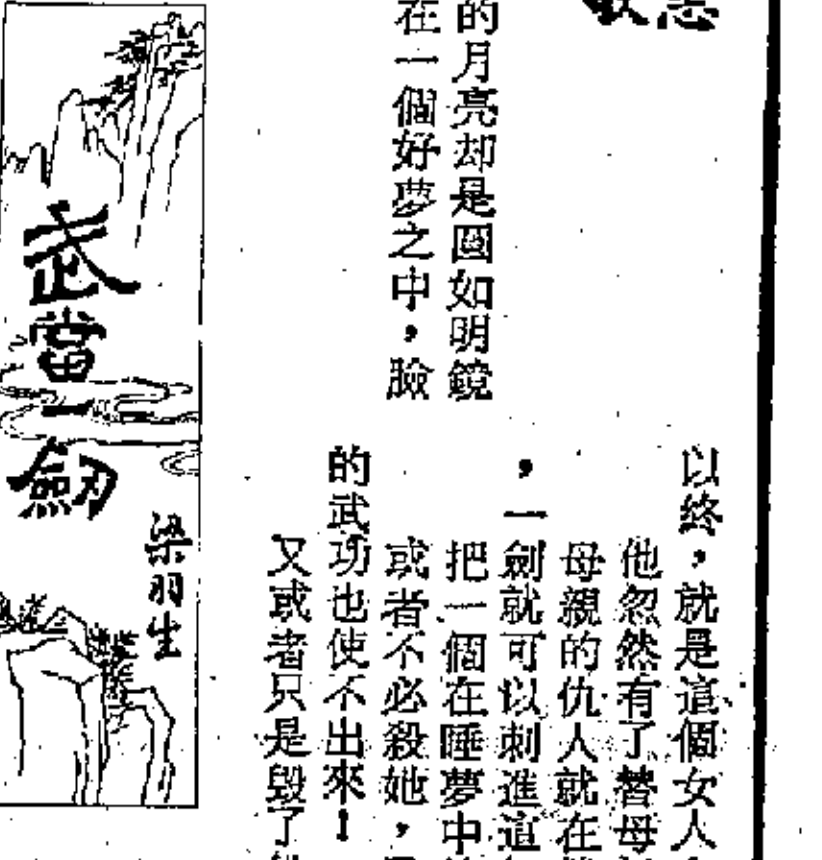 的月亮却是圓如明鏡
在一個好夢之中，臉
以終，就是這個女人
他忽然有了替母
母親的仇人就在
，一劍就可以刺進這
把一個在睡夢中
或者不必殺她，
的武功也使不出來！
又或者只是毀了
武當一劍
梁羽生